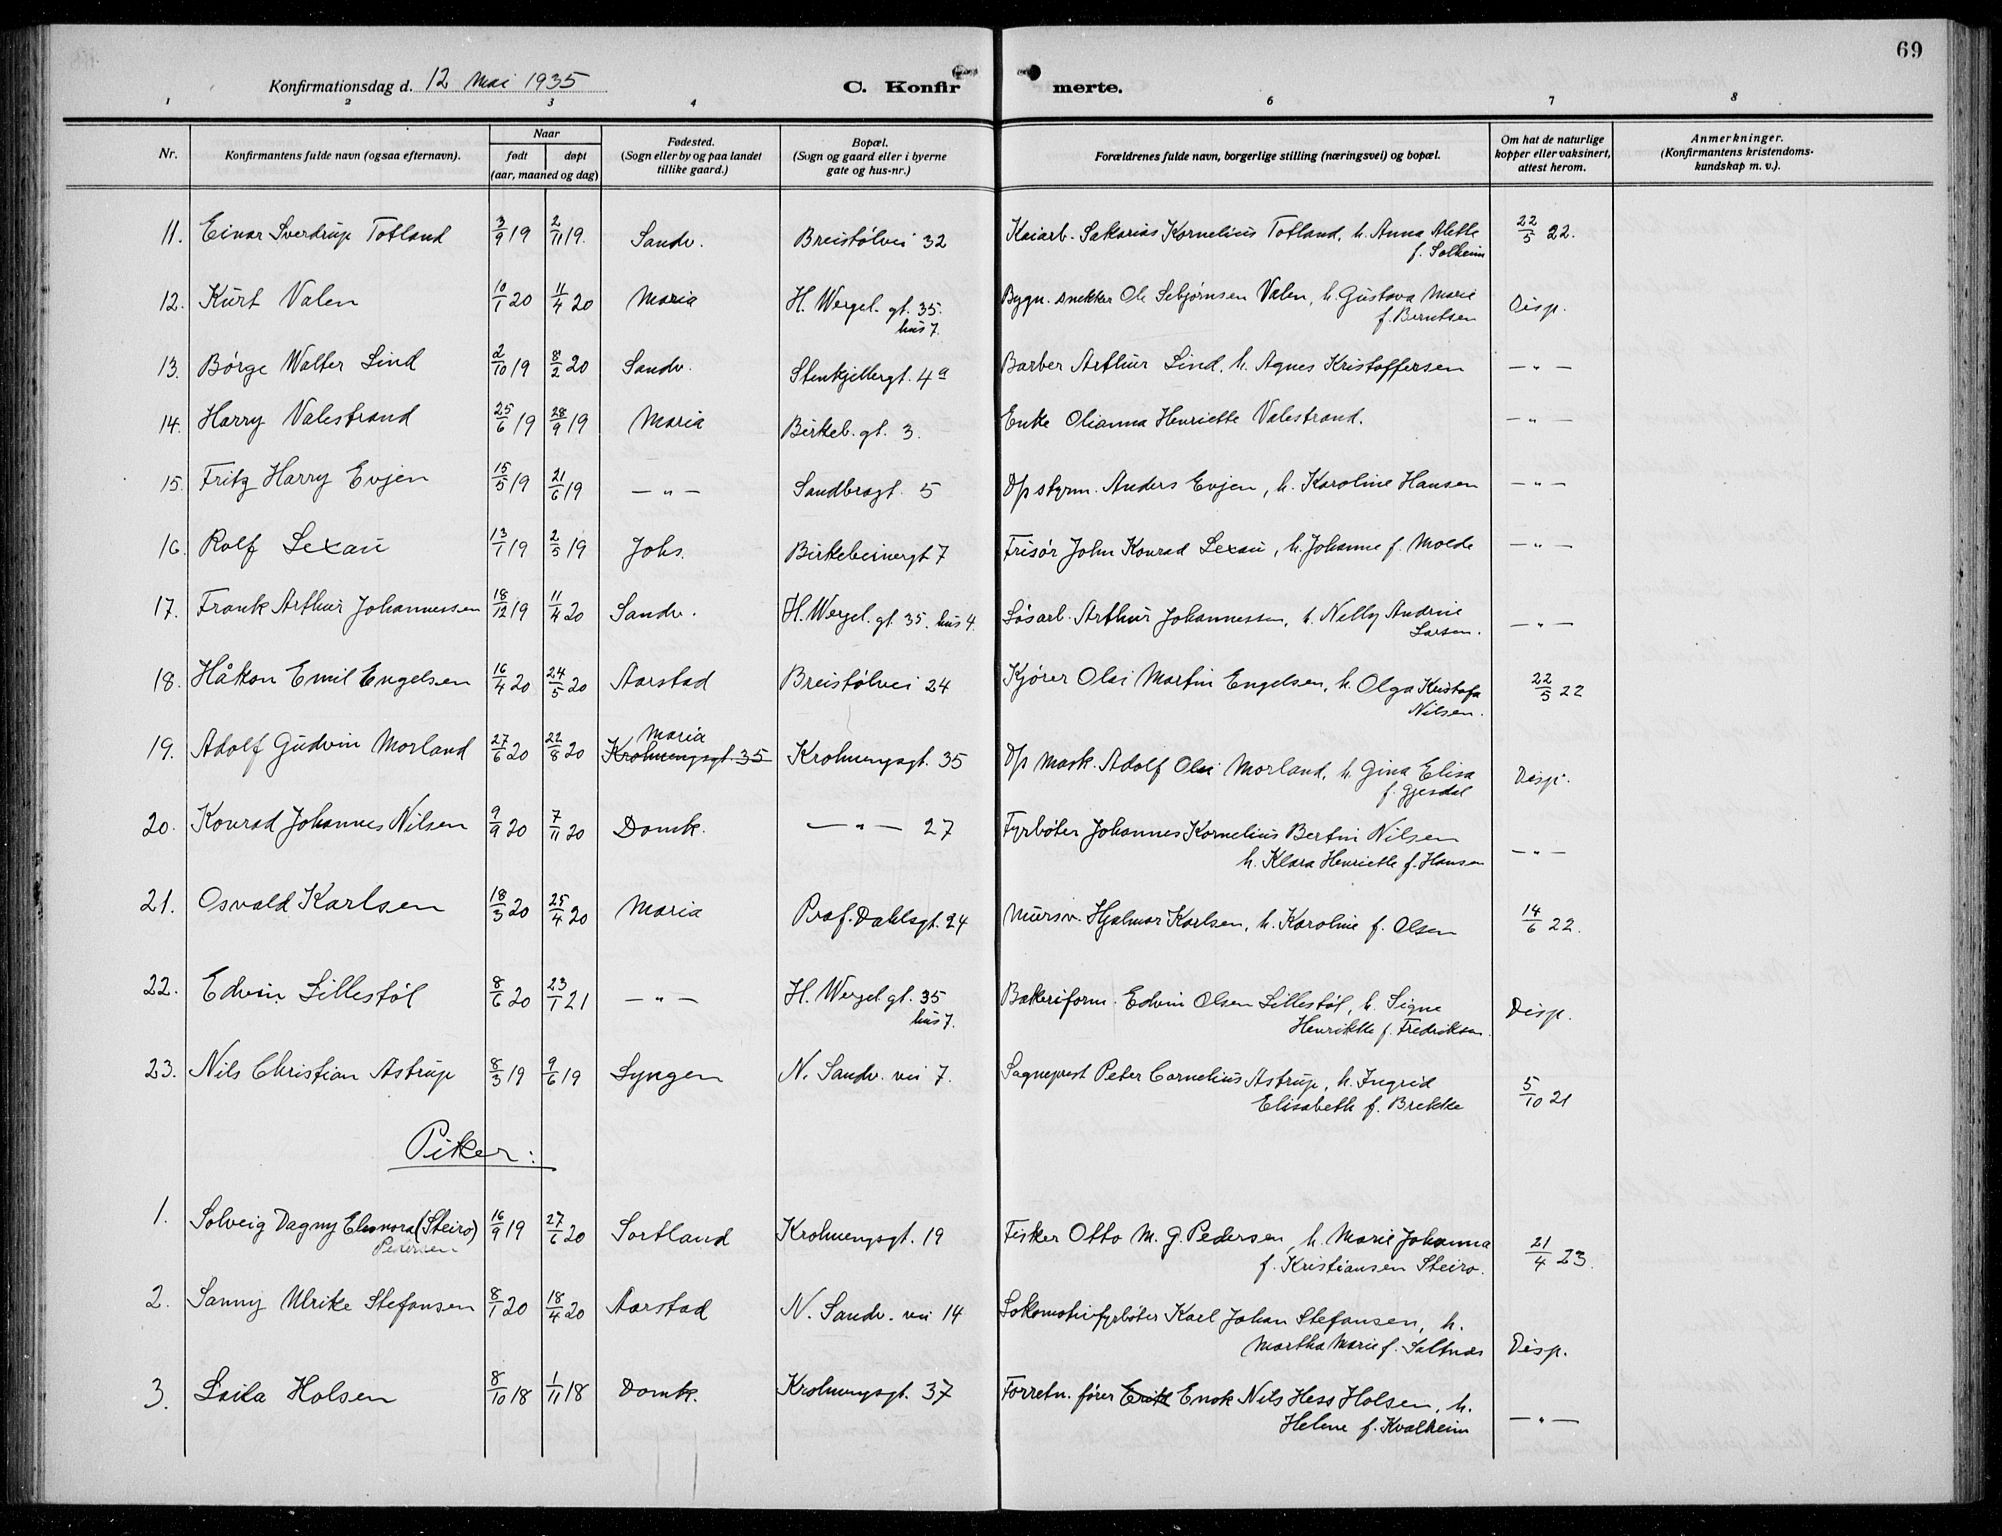 69
Konfirmationsdag d. 12 Mai 1935 C. Konfirmerte.
1 2 3 4 6 7 8
Nr. Konfirmantens fulde navn (ogsaa efternavn). Naar født døpt (aar, maaned og dag) Fødested. (Sogn eller by og paa landet tillike gaard.) Bopæl. (Sogn og gaard eller i byerne gate og hus-nr.) Forældrenes fulde navn, borgerlige stilling (næringsvei) og bopæl. Om hat de naturlige kopper eller vaksinert, attest herom. Anmerkninger. (Konfirmantens kristendomskundskap m. v.).
11. Einar Sverdrup Totland 3/9 19 2/11 19. Sandv. Breistølvei 32 Kaiarb. Sakarias Kornelius Totland, h. Anna Alette f. Solheim 22/5 22.
12. Kurt Valen 10/1 20 11/4 20 Maria H. Wergel. gt. 35. hus 7. Bygn. snekker Ole Sebjørnsen Valen, h. Gustava Marie f. Berntsen Disp.
13. Børge Walter Lind 2/10 19 8/2 20 Sandv. Stenkjellergt. 4a Barber Arthur Lind, h. Agnes Kristoffersen — " —
14. Harry Valestrand 25/6 19 28/9 19 Maria Birkeb. gt. 3. Enke Olianna Henriette Valestrand. — " —
15. Fritz Harry Evjen 15/5 19 21/6 19 — " — Sandbrogt. 5 D/p styrm. Anders Evjen, h. Karoline Hansen — " —
16. Rolf Lexau 13/1 19 2/5 19 Johs. Birkebeinergt 7 Frisør John Konrad Lexau, h. Johanne f. Molde — " —
17. Frank Arthur Johannessen 18/12 19 11/4 20 Sandv. H. Wergel. gt. 35. hus 4. Løsarb. Arthur Johannessen, h. Nelly Andrine Larsen. — " —
18. Håkon Emil Engelsen 16/4 20 24/5 20 Aarstad Breistølvei 24 Kjører Olai Martin Engelsen, h. Olga Kristofa Nilsen. 22/5 22
19. Adolf Gudvin Morland 27/6 20 22/8 20 Maria Krohnengsgt. 35 Krohnengsgt. 35 D/p Mask. Adolf Olai Morland, h. Gina Elisa f. Gjesdal Disp.
20. Konrad Johannes Nilsen 9/9 20 7/11 20 Domk. — " — 27 Fyrbøter Johannes Kornelius Bertin Nilsen h. Klara Henriette f. Hansen — " —
21. Osvald Karlsen 18/3 20 25/4 20 Maria Prof. Dahlsgt. 24 Mursv. Hjalmar Karlsen, h. Karoline f. Olsen 14/6 22.
22. Edvin Lillestøl 8/6 20 23/1 21 — " — H. Wergel. gt. 35 hus 7. Bakeriform. Edvin Olsen Lillestøl, h. Signe Henrikke f. Fredriksen. Disp.
23. Nils Christian Astrup 8/3 19 9/6 19 Lyngen N. Sandv. vei 7. Sogneprest Peter Cornelius Astrup, h. Ingrid Elisabeth f. Brekke 5/10 21
Piker:
1. Solveig Dagny Elenora (Steiro) Pedersen 16/9 19 27/6 20 Sortland Krohnengsgt. 19 Fisker Otto M. G. Pedersen, h. Marie Johanna f. Kristiansen Steiro. 21/4 23.
2. Sanny Ulrike Stefansen 8/1 20 18/4 20 Aarstad N. Sandv. vei 14 Lokomotivfyrbøter Karl Johan Stefansen, h. Martha Marie f. Saltnes Disp.
3. Laila Holsen 8/10 18 1/11 18 Domk. Krohnengsgt. 37 Forretn. fører Enok Nils Hess Holsen, h. Helene f. Kvalheim — " —